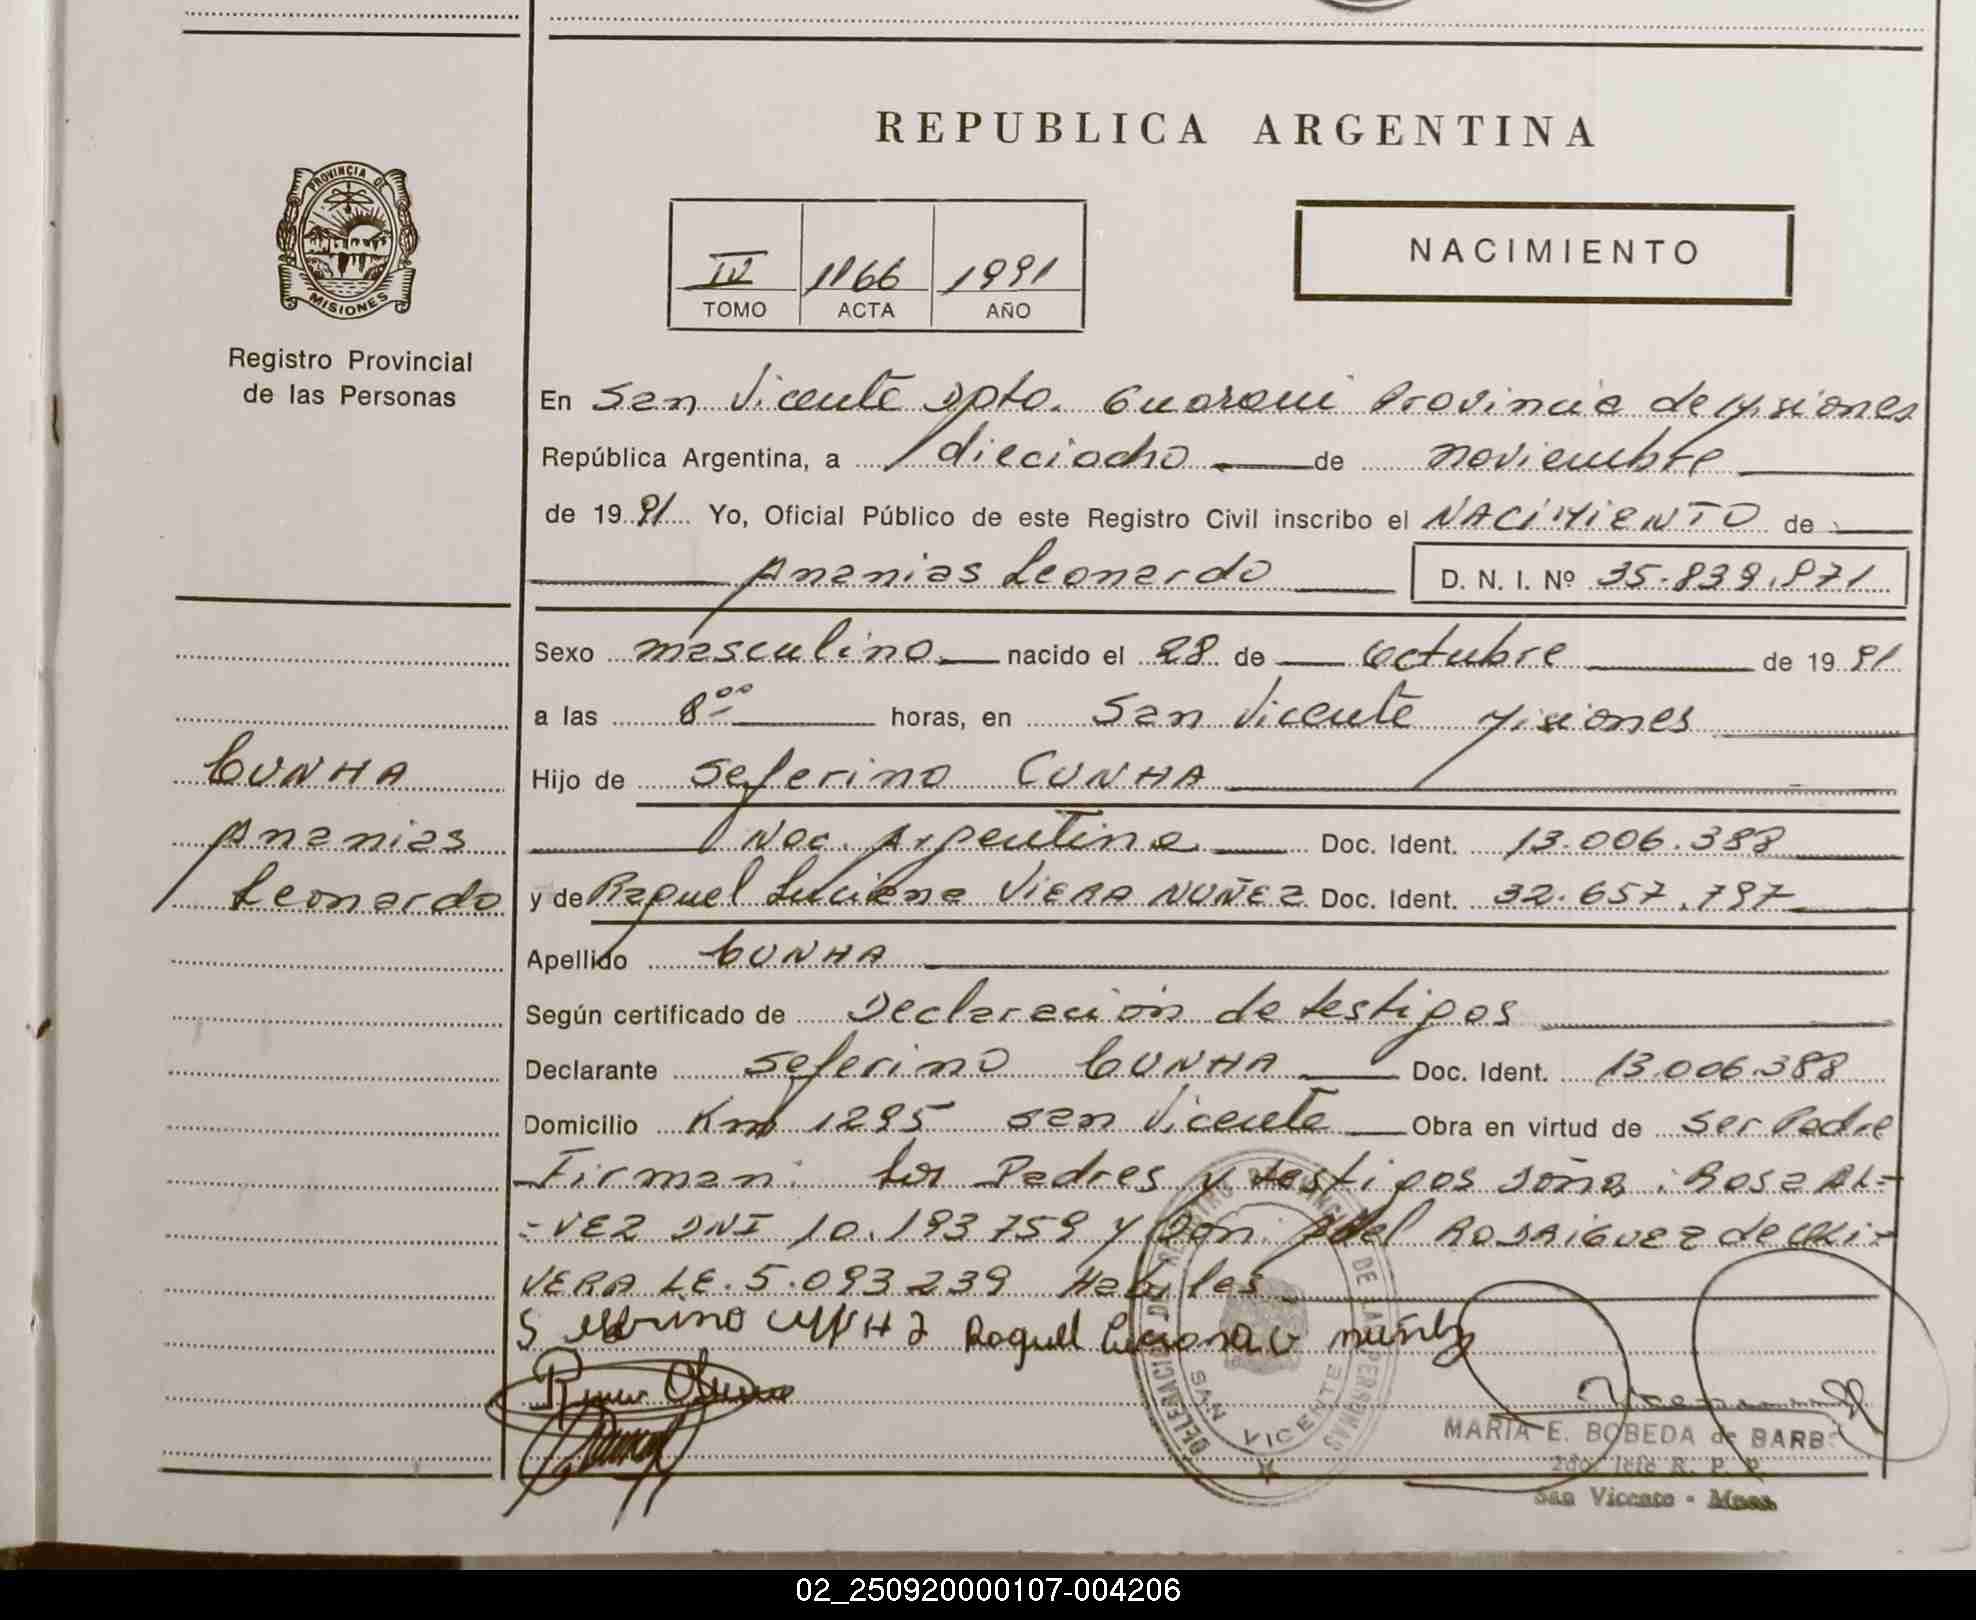 REPUBLICA ARGENTINA
PROVINCIA DE
MISIONES
Registro Provincial
de las Personas
IV 1166 1991
TOMO ACTA AÑO
NACIMIENTO
En San Vicente Dpto. Guarani Provincia de Misiones
República Argentina, a dieciocho de noviembre
de 1991 Yo, Oficial Público de este Registro Civil inscribo el NACIMIENTO de
Ananias Leonardo D. N. I. Nº 35.839.871
Sexo masculino nacido el 28 de octubre de 1991
a las 8 00 horas, en San Vicente Misiones
CUNHA
Ananias
Leonardo
Hijo de Seferino CUNHA
Nac. Argentina Doc. Ident. 13.006.388
y de Raquel Luciana VIERA NUÑEZ Doc. Ident. 32.657.797
Apellido CUNHA
Según certificado de Declaración de testigos
Declarante Seferino CUNHA Doc. Ident. 13.006.388
Domicilio Km 1295 San Vicente Obra en virtud de ser Padre
Firman: los Padres y testigos Doña: Rosa AL=
=VEZ DNI 10.193759 y Don: Abel RODRIGUEZ de OLI=
VERA LE. 5.093239 Habiles
Raquel Luciana V nuñez
DELEGACION DE REGISTRO PROVINCIAL DE LAS PERSONAS
SAN VICENTE
MARIA E. BOBEDA de BARB
R. P. P.
San Vicente - Mnes
02_250920000107-004206